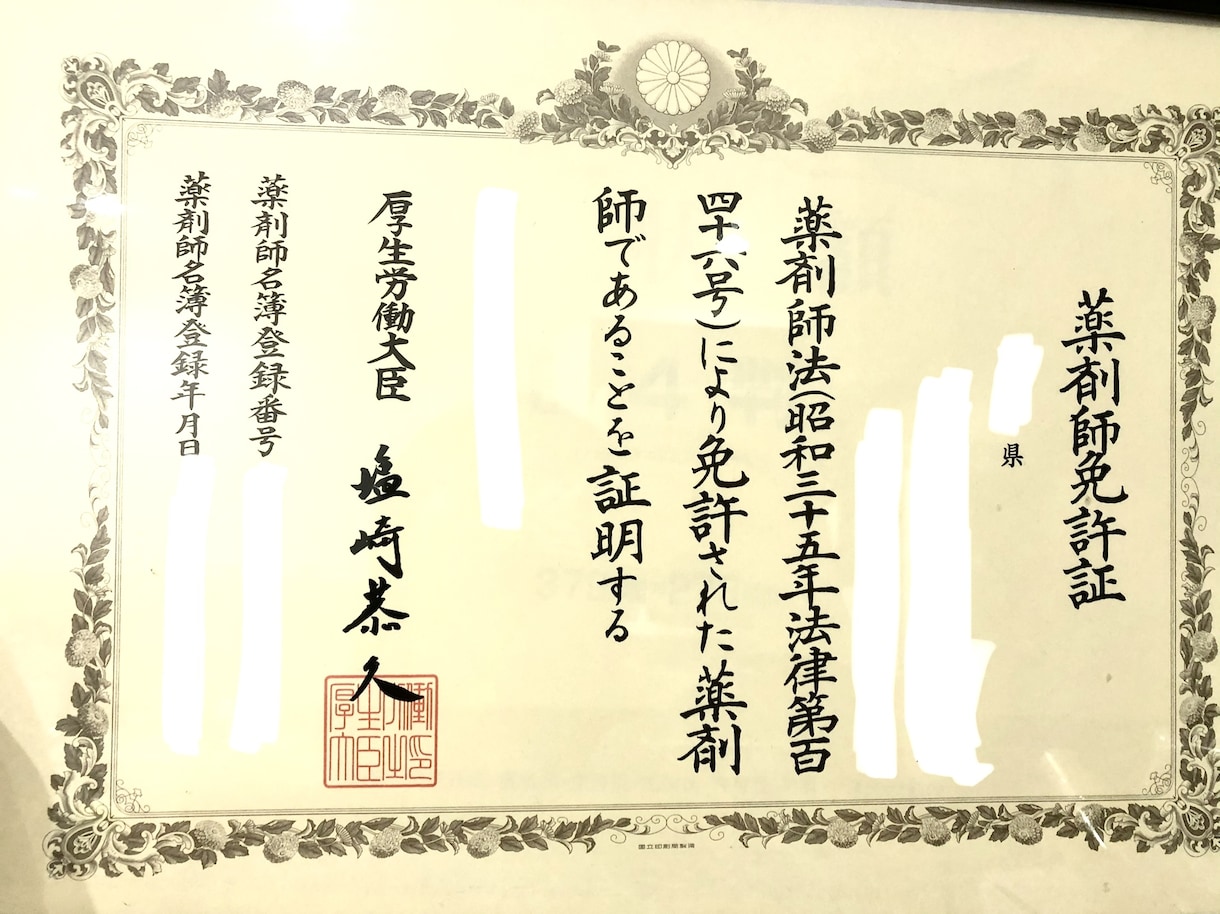 薬剤師免許証
県
薬剤師法(昭和三十五年法律第百
四十六号)により免許された薬剤
師であることを証明する
厚生労働大臣 塩崎恭久
薬剤師名簿登録番号
薬剤師名簿登録年月日
国立印刷局製造